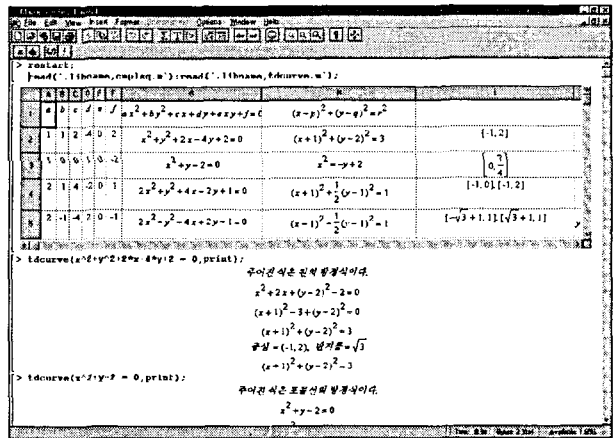 File Edit View Insert Format Options Window Help
> restart;
A B C D E F G H I
1 a b c d e f ax²+by²+cx+dy+exy+f=0 (x-p)²+(y-q)²=r²
2 1 1 2 -4 0 2 x²+y²+2x-4y+2=0 (x+1)²+(y-2)²=3 [-1,2]
3 1 0 0 1 0 -2 x²+y-2=0 x²=-y+2
4 2 1 4 -2 0 1 2x²+y²+4x-2y+1=0 (x+1)²+1/2(y-1)²=1 [-1,0],[-1,2]
5 2 -1 -4 2 0 -1 2x²-y²-4x+2y-1=0 (x-1)²-1/2(y-1)²=1 [-√3+1,1],[√3+1,1]
> tdcurve(x^2+y^2+2*x-4*y+2 = 0,print);
주어진 식은 원의 방정식이다.
x²+2x+(y-2)²-2=0
(x+1)²-3+(y-2)²=0
(x+1)²+(y-2)²=3
중심=(-1,2), 반지름=√3
(x+1)²+(y-2)²=3
> tdcurve(x^2+y-2 = 0,print);
주어진 식은 포물선의 방정식이다.
x²+y-2=0